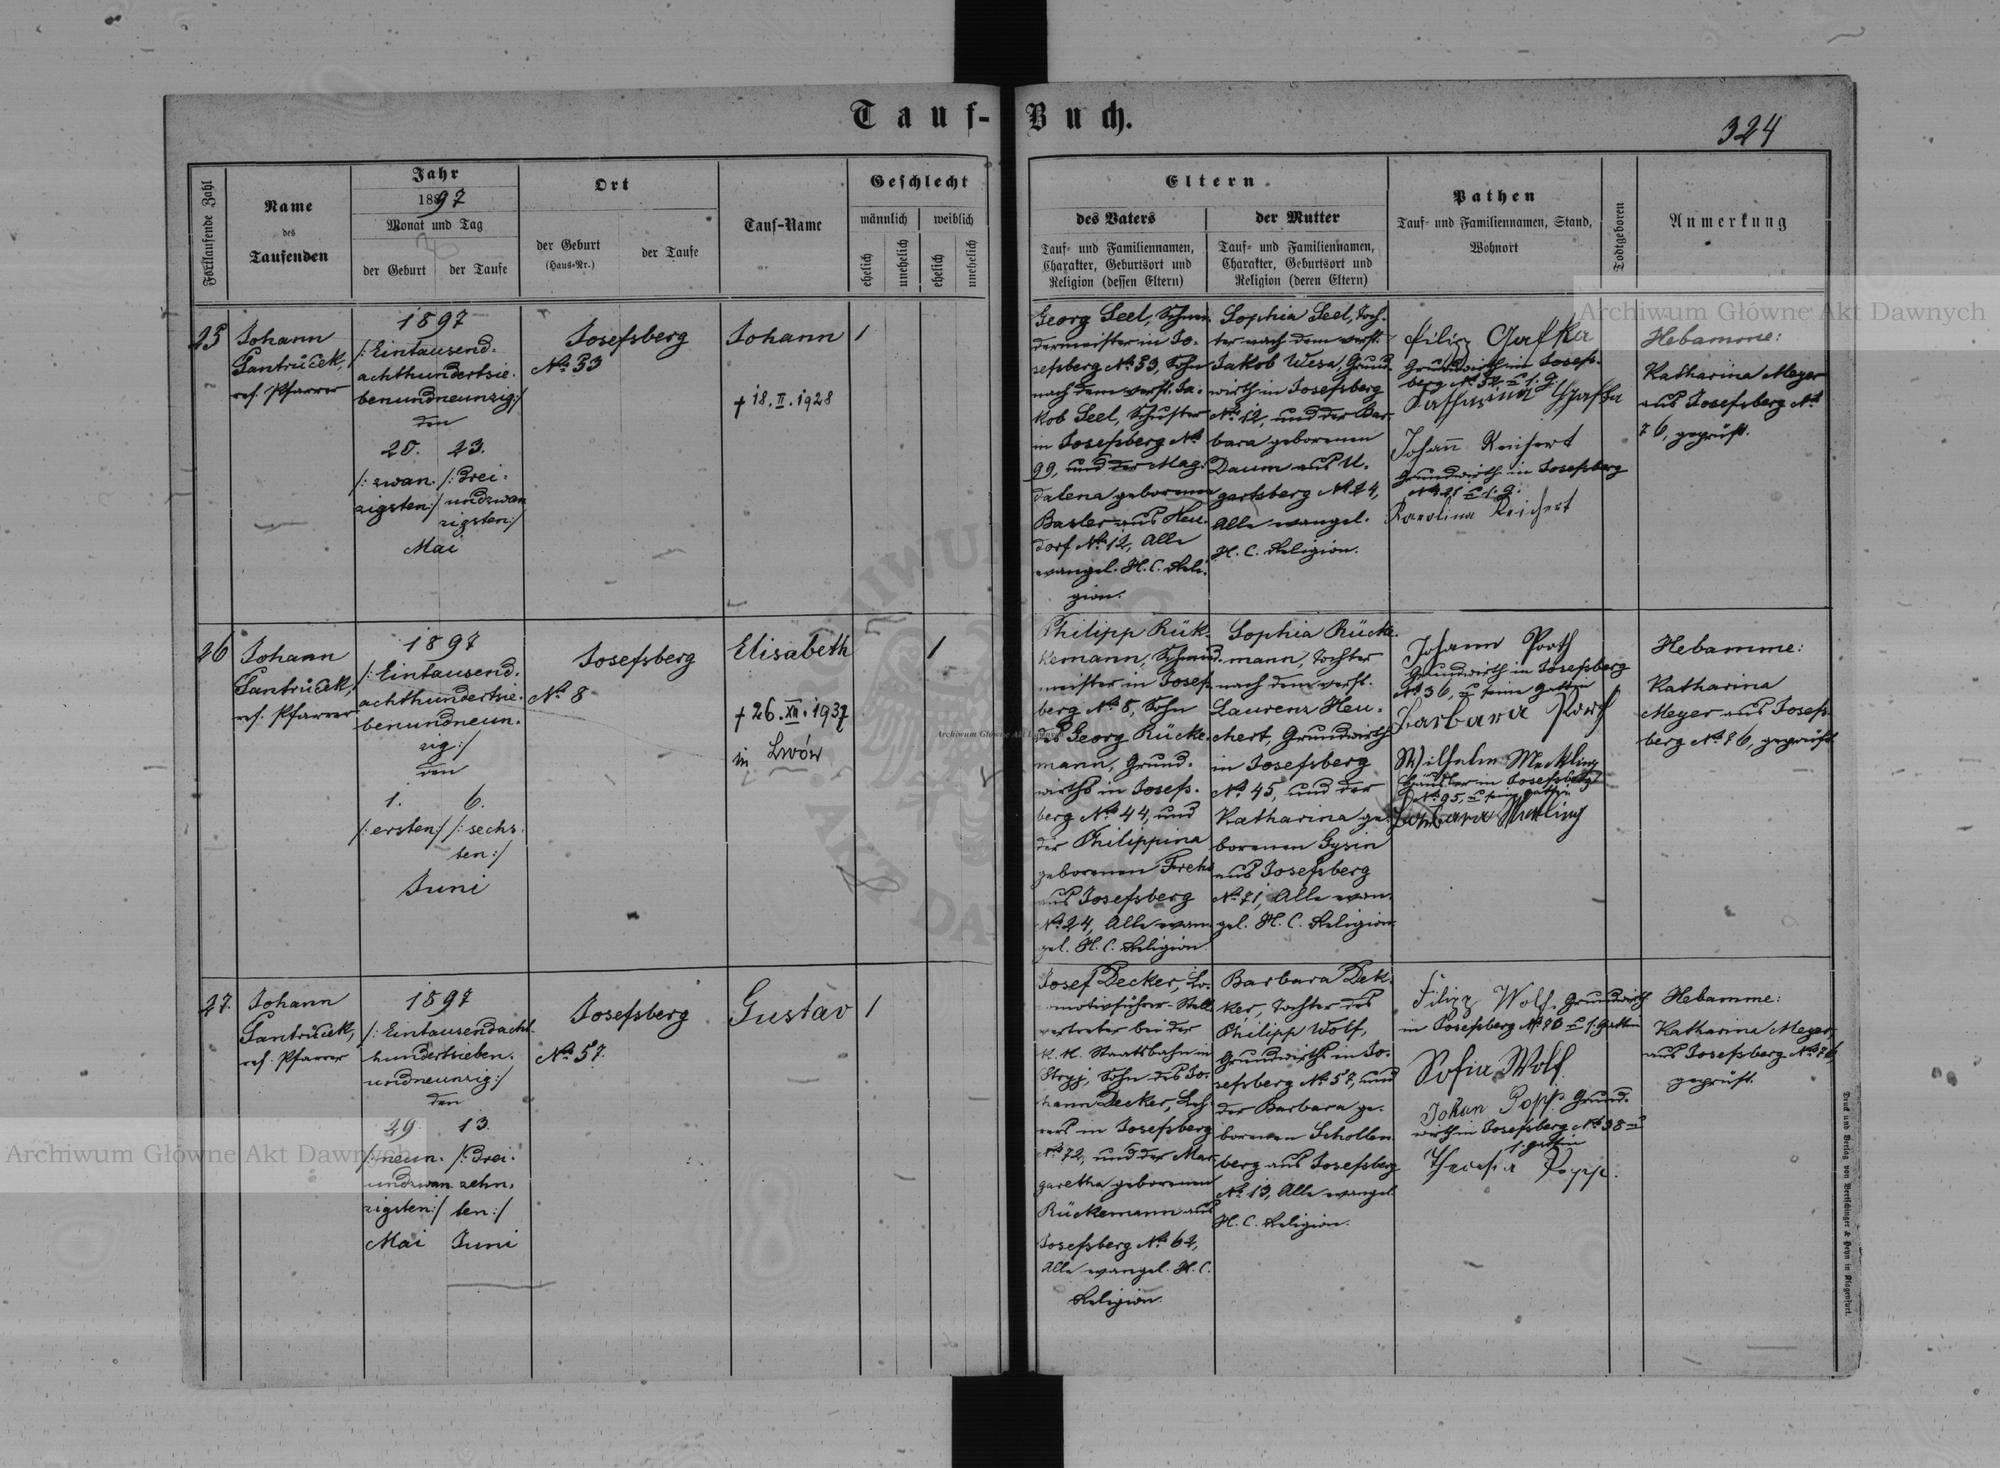 Tauf-Buch.
324
Fortlaufende Zahl
Name
des
Taufenden
Jahr
1897
Monat und Tag
der Geburt
der Taufe
Ort
der Geburt
(Haus-Nr.)
der Taufe
Tauf-Name
Geschlecht
männlich
weiblich
ehelich
unehelich
ehelich
unehelich
Eltern
des Vaters
Tauf- und Familiennamen,
Charakter, Geburtsort und
Religion (dessen Eltern)
der Mutter
Tauf- und Familiennamen,
Charakter, Geburtsort und
Religion (deren Eltern)
Pathen
Tauf- und Familiennamen, Stand,
Wohnort
Todtgeboren
Anmerkung
25
Johann
Jantůček,
ref. Pfarrer
1897
/: Eintausend-
achthundertsie-
benundneunzig :/
den
20. 23.
/: zwan- /: Drei-
zigsten :/ undzwan
zigsten :/
Mai
Josefsberg
No. 33
Johann
† 18. II. 1928
1
Georg Seel, Schnei-
dermeister in Jo-
sefsberg No. 33, Sohn
nach dem verst. Ja-
kob Seel, Schuster
in Josefsberg No.
99, und der Mag-
dalena geborenen
Basler aus Neu-
dorf No. 12, Alle
evangel. H. C. Reli-
gion.
Sophia Seel, Toch-
ter nach dem verst.
Jakob Wesa, Grund-
wirth in Josefsberg
No. 12, und der Bar-
bara geborenen
Daum aus U-
gartsberg No. 24,
Alle evangel.
H. C. Religion.
Filipp Gafka
Grundwirth in Josefs-
berg No. 32
Johann Reichert
Grundwirth in Josefsberg
Karolina Reichert
Hebamme:
Katharina Meyer
aus Josefsberg No.
76, geprüft.
26
Johann
Jantůček,
ref. Pfarrer
1897
/: Eintausend-
achthundertsie-
benundneun-
zig :/
den
1. 6.
/: ersten :/ /: sechs-
ten :/
Juni
Josefsberg
No. 8
Elisabeth
† 26. XII. 1937
in Lwów
1
Philipp Rük-
kemann, Schmied-
meister in Josefs-
berg No. 8, Sohn
des Georg Rücke-
mann, Grund-
wirths in Josefs-
berg No. 44, und
der Philippina
geborenen
aus Josefsberg
No. 24, Alle evan-
gel. H. C. Religion
Sophia Rücke-
mann, Tochter
nach dem verst.
Laurenz Heu-
chert, Grundwirth
in Josefsberg
No. 45, und der
Katharina ge-
borenen Gysin
aus Josefsberg
No. 71, Alle evan-
gel. H. C. Religion
Johann Porth
Grundwirth in Josefsberg
No. 36, u. seine Gattin
Barbara Porth
Wilhelm Meckling
Häusler in Josefsberg
No. 95, u. seine Gattin
Barbara Meckling
Hebamme:
Katharina
Meyer aus Josefs-
berg No. 76, geprüft.
27.
Johann
Jantůček,
ref. Pfarrer
1897
/: Eintausendacht-
hundertsieben-
undneunzig :/
den
29. 13.
/: neun- /: Drei-
undzwan- zehn-
zigsten :/ ten :/
Mai Juni
Josefsberg
No. 57.
Gustav
1
Josef Decker, Lo-
comotivführer-Stell-
vertreter bei der
K. K. Staatsbahn in
Stryj, Sohn des Jo-
hann Decker, Leh-
rers in Josefsberg
No. 72, und der Mar-
garetha geborenen
Rückemann aus
Josefsberg No. 62,
Alle evangel. H. C.
Religion.
Barbara Dek-
ker, Tochter des
Philipp Wolf,
Grundwirths in Jo-
sefsberg No. 57, und
der Barbara ge-
borenen Schollen-
berg aus Josefsberg
No. 13, Alle evangel.
H. C. Religion.
Filipp Wolf. Grundwirth
in Josefsberg No. 80 u. s. Gattin
Sofia Wolf.
Johan Popp. Grund-
wirth in Josefsberg No. 38 u.
s. Gattin
Theresia Popp.
Hebamme:
Katharina Meyer,
aus Josefsberg No. 76
geprüft.
Druck und Verlag von Bertschinger & Heyn in Klagenfurt.
Archiwum Główne Akt Dawnych
Archiwum Główne Akt Dawnych
Archiwum Główne Akt Dawnych